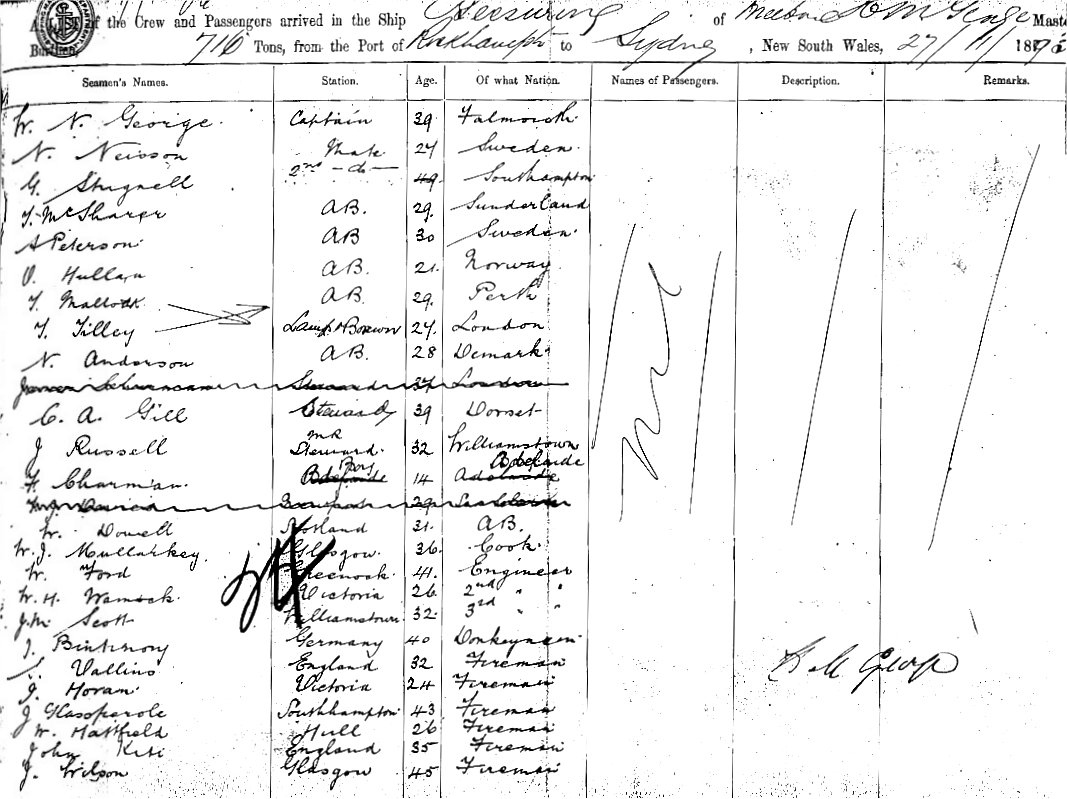 of the Crew and Passengers arrived in the Ship of Master
Burthen, 716 Tons, from the Port of to Sydney, New South Wales, 27/11/
Seamen's Names. Station. Age. Of what Nation. Names of Passengers. Description. Remarks.
W. N. George. Captain 39 Falmouth.
N. Neisson Mate 27 Sweden.
G. 2nd - do - 49. Southampton
T. McSharer A.B. 29. Sunderland
A Peterson. AB 30 Sweden.
O. A.B. 21. Norway.
T. A.B. 29. Perth
T. Tilley Lamp 27. London
N. Anderson A.B. 28 Demark.
C. A. Gill Steward 39 Dorset
J Russell Steward. 32 Williamstown
F. Charman. Boy 14 Adelaide
W. Dowell Scotland 31. A.B.
W. J. Mullarkey. Glasgow. 36. Cook.
W. Ford Greenock. 41. Engineer
W. H. Victoria 26 2nd " "
J. M. Scott Williamstown 32. 3rd " "
J. Germany 40 Donkeyman.
Vallins England 32 Fireman
J. Horan. Victoria 24 Fireman
J Southhampton 43 Fireman
W. Hattfield Hull 26 Fireman
John England 35 Fireman
J. Wilson Glasgow 45 Fireman
Nil